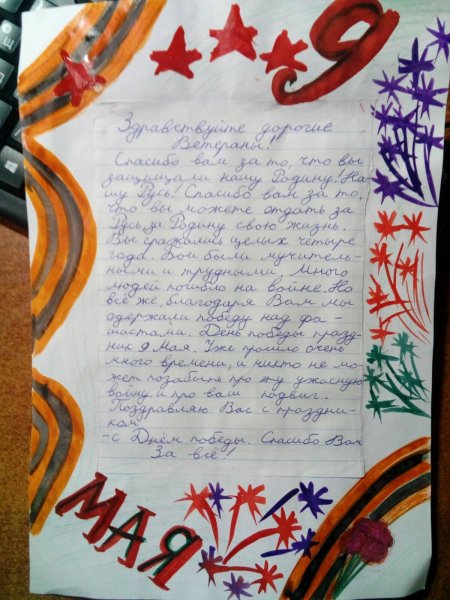 9
Здравствуйте дорогие
Ветераны!
Спасибо вам за то, что вы
защищали нашу Родину! На
шу Русь! Спасибо вам за то,
что вы можете отдать за
Русь, за Родину свою жизнь.
Вы сражались целых четыре
года. Бои были мучитель-
ными и трудными. Много
людей погибло на войне. Но
всё же, благодаря Вам мы
одержали победу над фа-
шистами. День победы празд-
ник 9 Мая. Уже прошло очень
много времени, и никто не мо-
жет позабыть про эту ужасную
войну и про ваш подвиг.
Поздравляю Вас с праздни-
ком
-с Днём победы. Спасибо Вам
За всё!
МАЯ